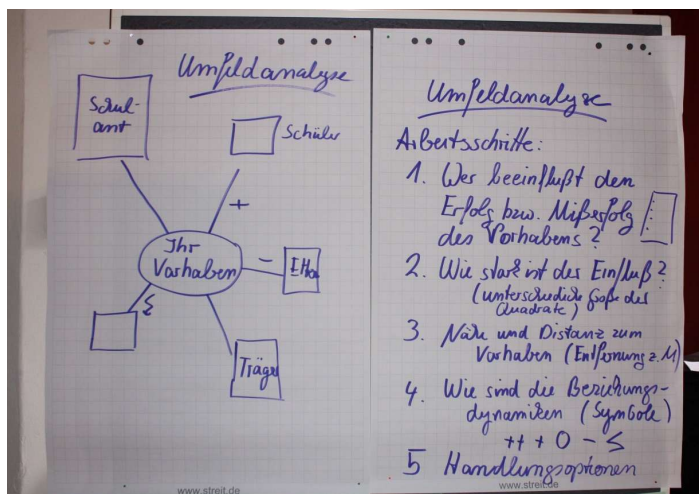 Umfeldanalyse
Schul-
amt
Schüler
+
Ihr
Vorhaben
-
Träger
www.streit.de
Umfeldanalyse
Arbeitsschritte:
1. Wer beeinflußt den
Erfolg bzw. Mißerfolg
des Vorhabens?
2. Wie stark ist der Einfluß?
(unterschiedliche Größe der
Quadrate)
3. Nähe und Distanz zum
Vorhaben (Entfernung z. M)
4. Wie sind die Beziehungs-
dynamiken (Symbole)
++ + O -
5 Handlungsoptionen
www.streit.de